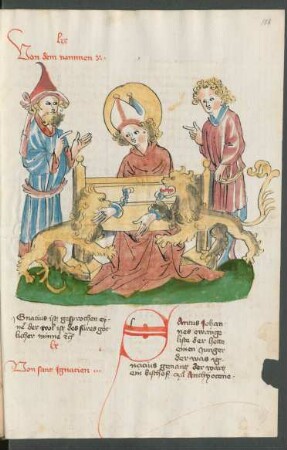 Von dem nammen ꝛc
Ignacius ist gesprochen ei-
ne der vol ist des fúres göt-
licher minne ꝛc
Von sant Ignacien
Sanctus Johan-
nes ewange-
list der hett
einen junger
der was Ig-
nacius genant der ward
ein bischof zů Anthyocena